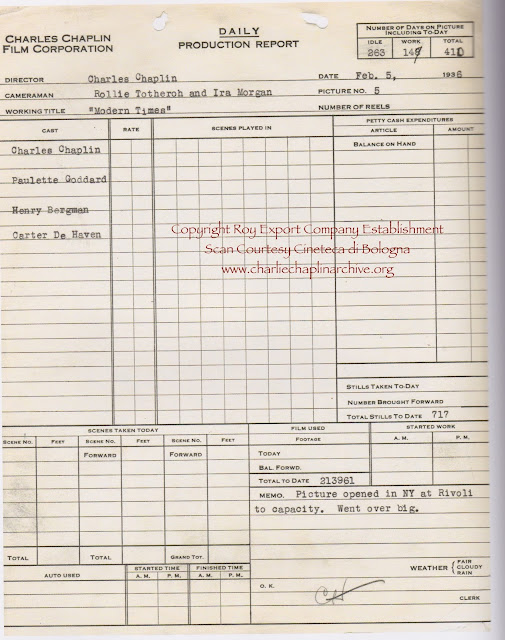 CHARLES CHAPLIN
FILM CORPORATION
DAILY
PRODUCTION REPORT
NUMBER OF DAYS ON PICTURE
INCLUDING TO-DAY
IDLE WORK TOTAL
263
DIRECTOR Charles Chaplin DATE Feb. 5, 1936
CAMERAMAN Rollie Totheroh and Ira Morgan PICTURE NO. 5
WORKING TITLE "Modern Times" NUMBER OF REELS
CAST RATE SCENES PLAYED IN PETTY CASH EXPENDITURES
ARTICLE AMOUNT
Charles Chaplin BALANCE ON HAND
Paulette Goddard
Henry Bergman
Carter De Haven
Copyright Roy Export Company Establishment
Scan Courtesy Cineteca di Bologna
www.charliechaplinarchive.org
STILLS TAKEN TO-DAY
NUMBER BROUGHT FORWARD
TOTAL STILLS TO DATE 717
SCENES TAKEN TODAY FILM USED STARTED WORK
SCENE NO. FEET SCENE NO. FEET SCENE NO. FEET FOOTAGE A. M. P. M.
FORWARD FORWARD TODAY
BAL. FORWD.
TOTAL TO DATE 213961
MEMO. Picture opened in NY at Rivoli
to capacity. Went over big.
TOTAL TOTAL GRAND TOT.
AUTO USED STARTED TIME FINISHED TIME
A. M. P. M. A. M. P. M.
WEATHER FAIR
CLOUDY
RAIN
O. K.
CLERK